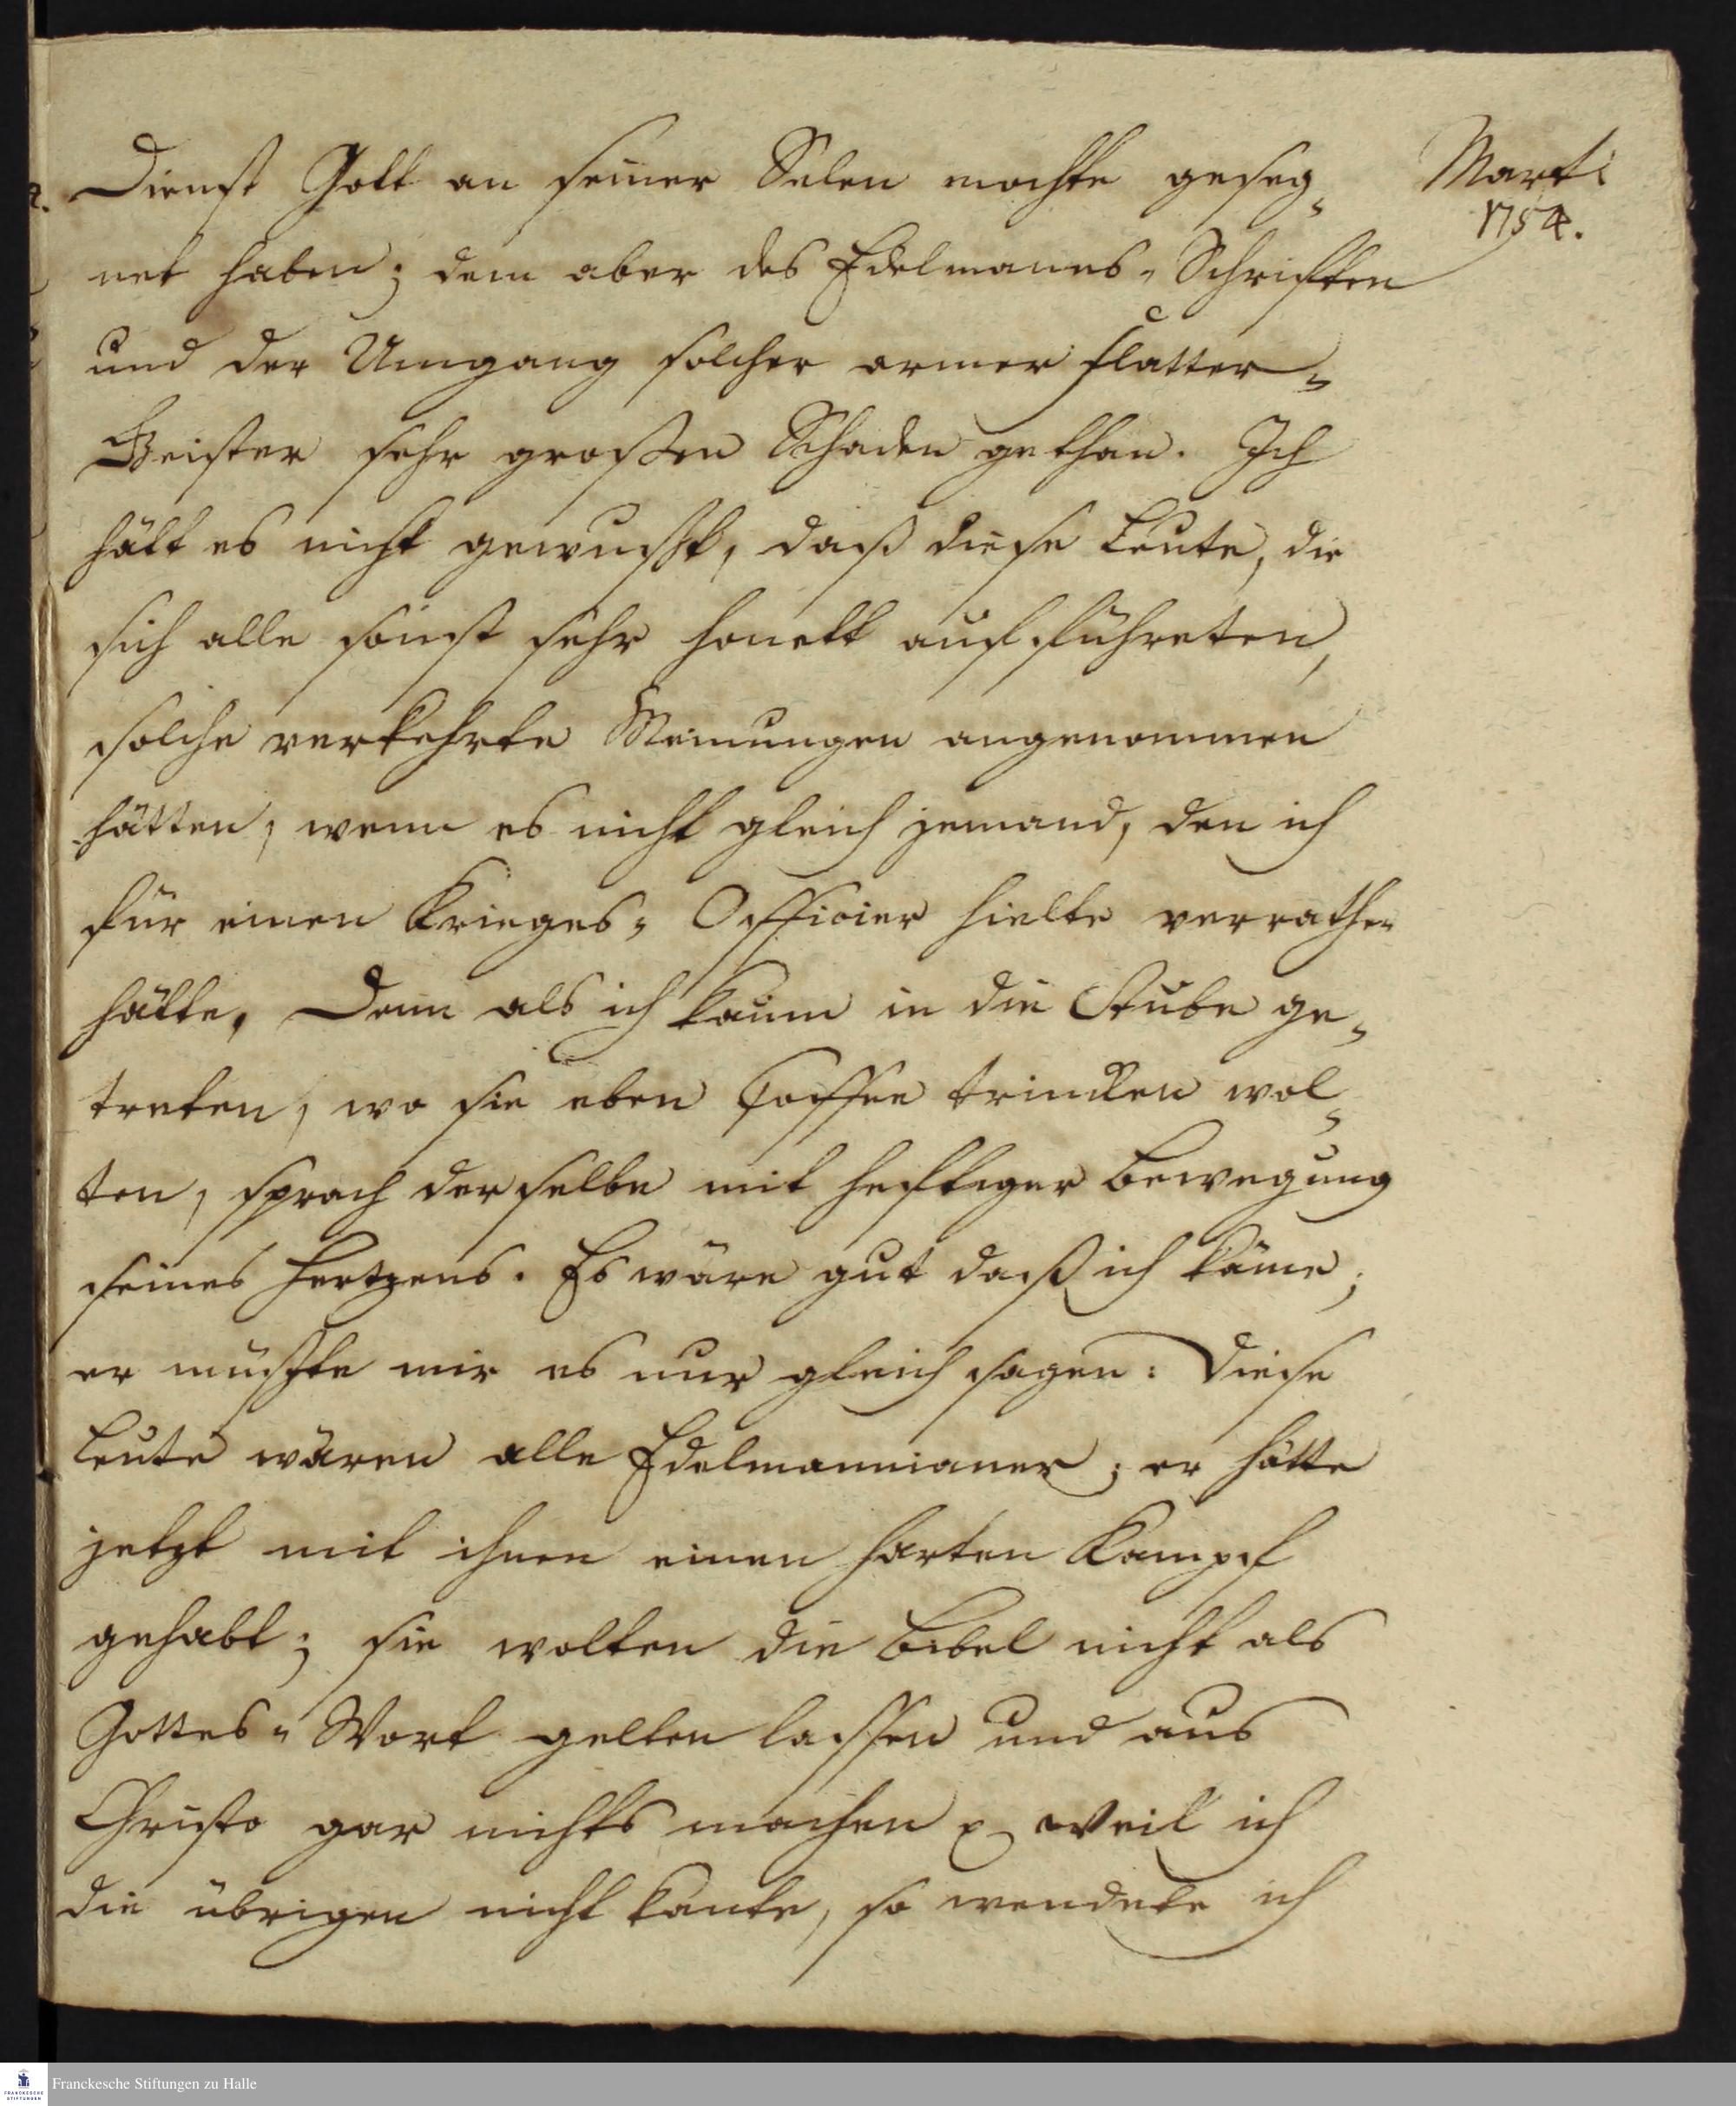 Dienst Gott an seiner Selen mochte geseg-
net haben; dem aber des Edelmanns-Schriften
und der Umgang solcher armer flatter-
Geister sehr großen Schaden gethan. Ich
hätt es nicht gewusst, daß diese Leute, die
sich alle sonst sehr honett aufführeten,
solche verkehrte Meinungen angenommen
hätten, wenn es nicht gleich jemand, den ich
für einen Krieges-Officier hielte verrathen
hätte, Denn als ich kaum in die Stube ge-
treten, wo sie eben Coffee trincken wol-
ten, sprach derselbe mit heftiger Bewegung
seines Hertzens. Es wäre gut daß ich käme;
er müsste mir es nur gleich sagen: Diese
Leute wären alle Edelmannianer; er hätte
jetzt mit ihnen einen harten Kampf
gehabt; sie wolten die Bibel nicht als
Gottes-Wort gelten lassen und aus
Christo gar nichts machen p. Weil ich
die übrigen nicht kante, so wendete ich
Marti
1754.
Franckesche Stiftungen zu Halle